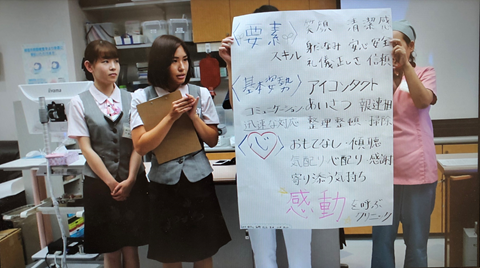 〈要素〉 笑顔 清潔感
スキル 身だしなみ 安心安全
礼儀正しさ 信頼
〈基本姿勢〉 アイコンタクト
コミュニケーション あいさつ 報連相
迅速な対応 整理整頓 掃除
〈心〉 おもてなし 傾聴
気配り 心配り 感謝
寄り添う気持ち
感動 を呼ぶ
クリニック